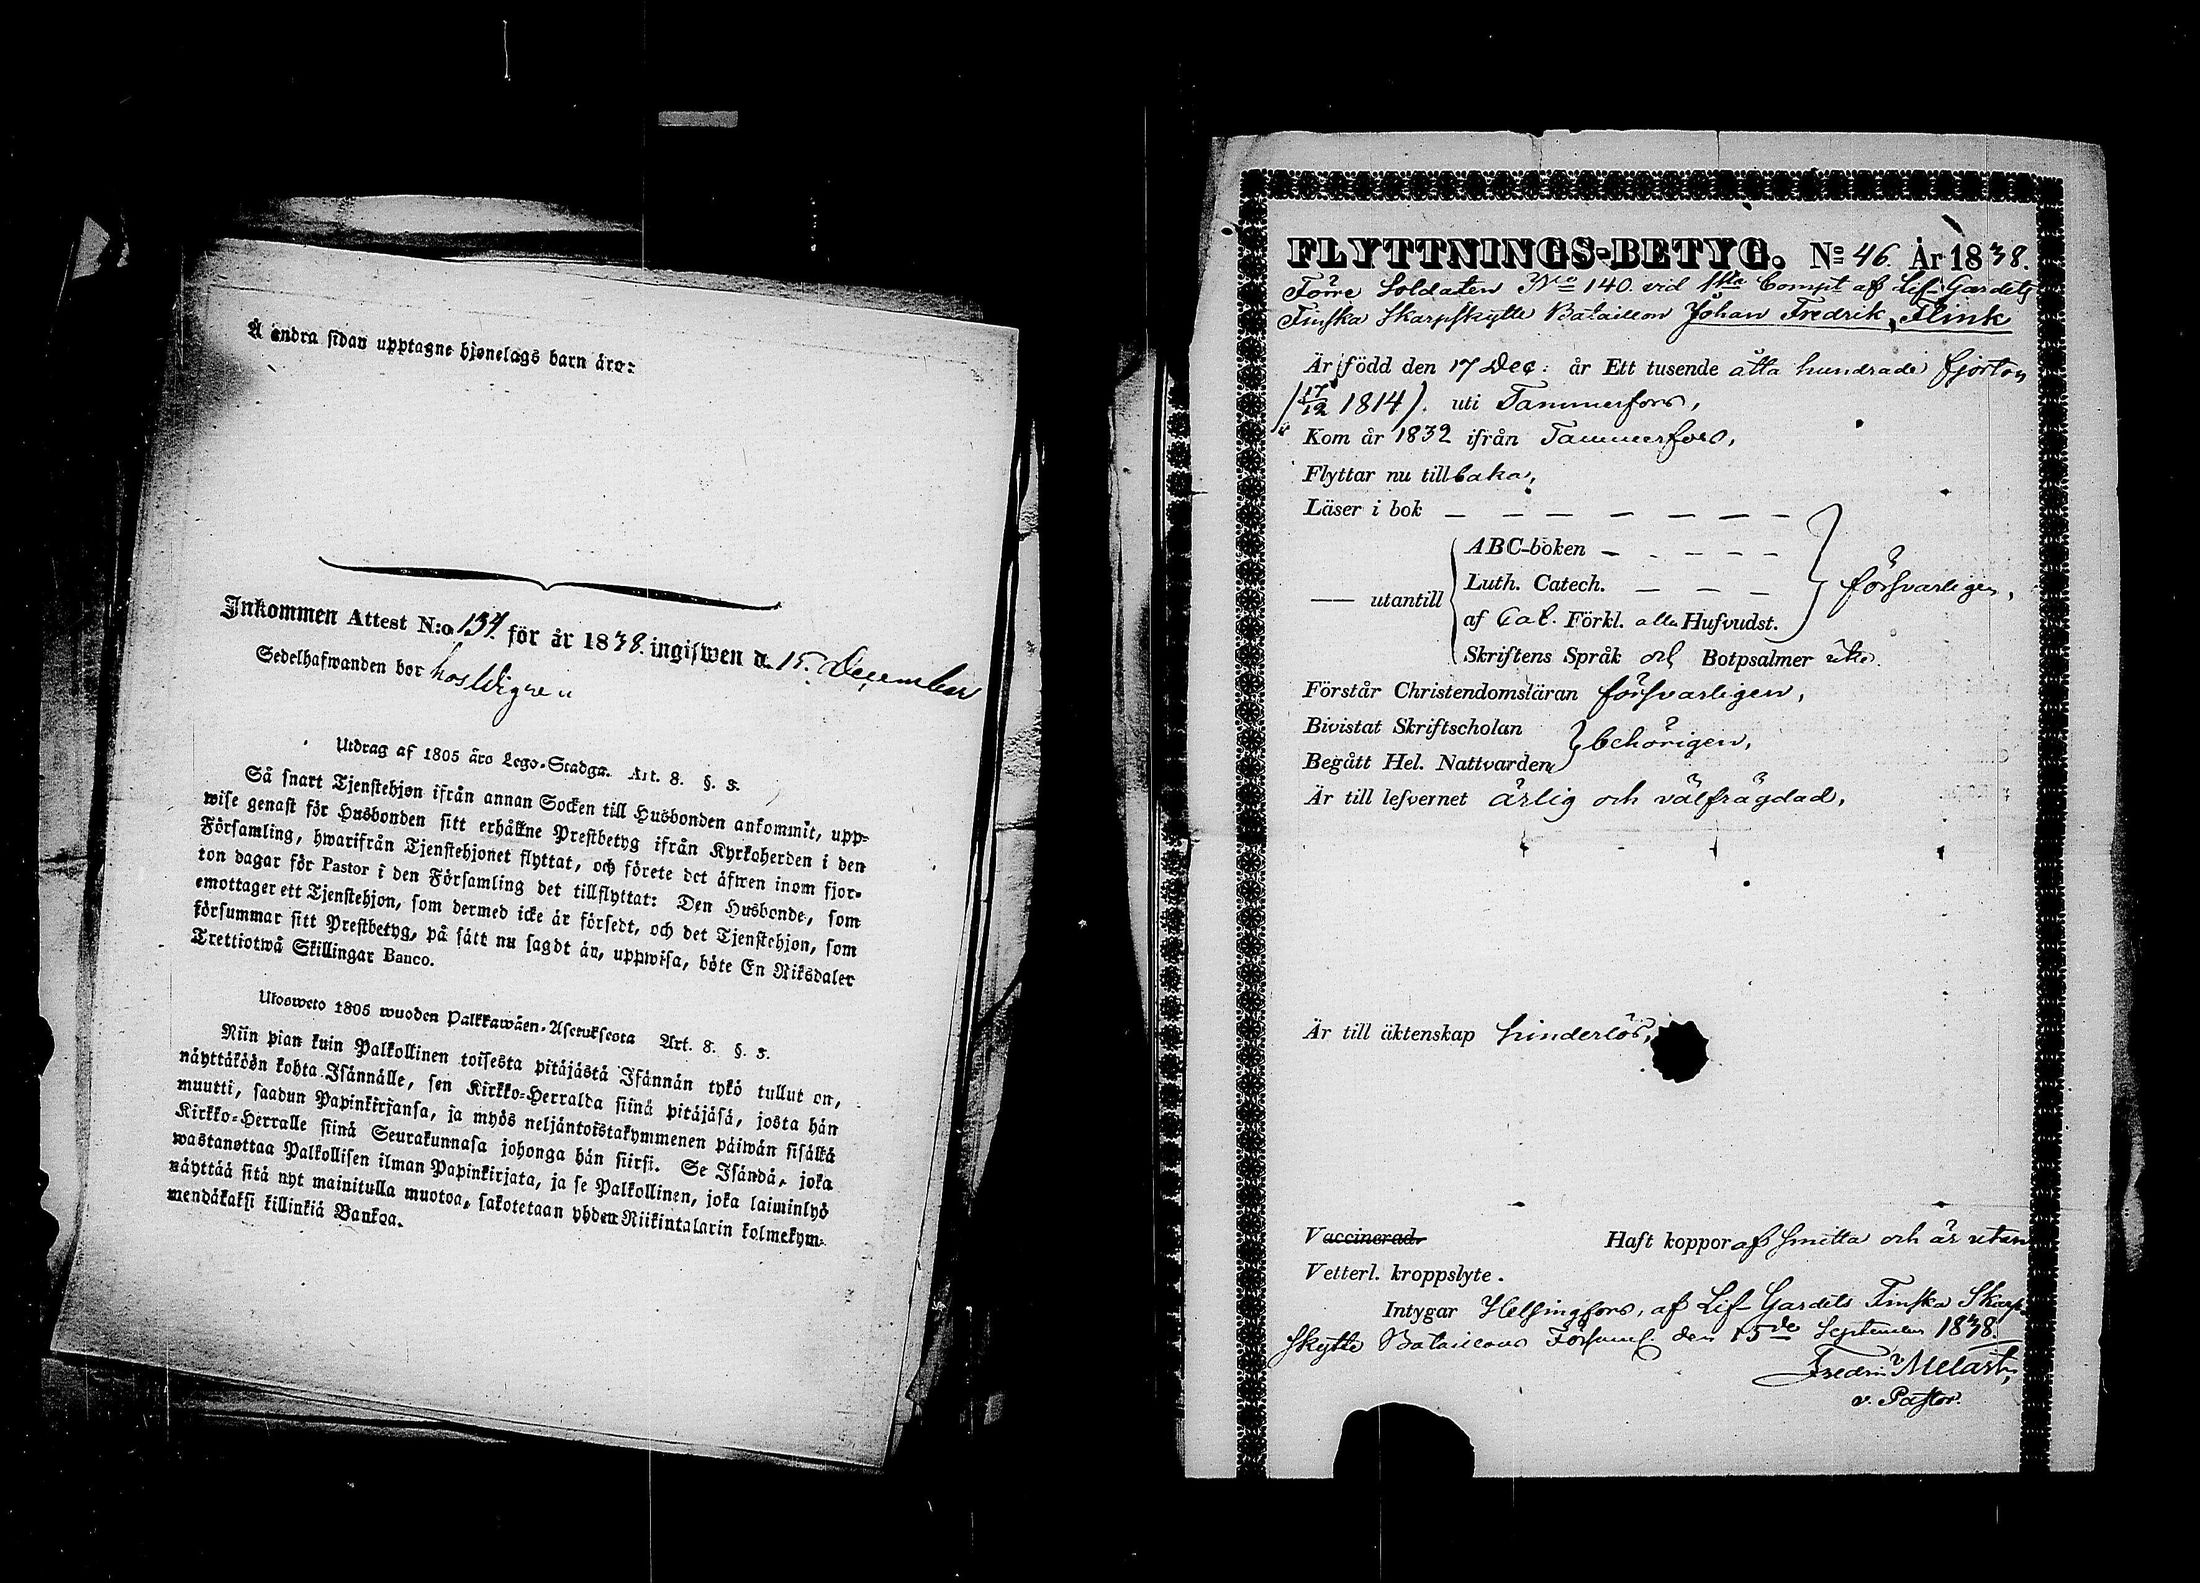 Å andra sidan upptagne hjonelags barn äro:
Inkommen Attest N:o 134. för år 1838. ingifwen d. 15. December
Sedelhafwanden bor hos
Utdrag af 1805 års Lego-Stadga. Art. 8. §. 3.
Så snart Tjenstehjon ifrån annan Socken till Husbonden ankommit, upp-
wise genast för Husbonden sitt erhållne Prestbetyg ifrån Kyrkoherden i den
Församling, hwarifrån Tjenstehjonet flyttat, och förete det äfwen inom fjor-
ton dagar för Pastor i den Församling det tillflyttat: Den Husbonde, som
emottager ett Tjenstehjon, som dermed icke är försedt, och det Tjenstehjon, som
försummar sitt Prestbetyg, på sätt nu sagdt är, uppwisa, böte En Riksdaler
Trettiotwå Skillingar Banco.
Ulosweto 1805 wuoden Palkkawäen-Asetuksesta Art. 8. §. 3.
Niin pian kuin Palkollinen toisesta pitäjästä Isännän tykö tullut on,
näyttäköön kohta Isännälle, sen Kirkko-Herralda siinä pitäjäsä, josta hän
muutti, saadun Papinkirjansa, ja myös neljäntoistakymmenen päiwän sisällä
Kirkko-Herralle siinä Seurakunnasa johonga hän siirsi. Se Isändä, joka
wastanottaa Palkollisen ilman Papinkirjata, ja se Palkollinen, joka laiminlyö
näyttää sitä nyt mainitulla muotoa, sakotetaan yhden Riikintalarin kolmekym-
mendäkaksi killinkiä Bankoa.
FLYTTNINGS-BETYG. No 46. År 1838.
Förre Soldaten No 140. vid 1sta Compt af Lif-Gardets
Finska Skarpskytte Bataillon Johan Fredrik Flink
Är född den 17 Dec: år Ett tusende åtta hundrade fjorton
(17/12 1814). uti Tammerfors,
Kom år 1832 ifrån Tammerfors,
Flyttar nu tillbaka,
Läser i bok — — — — — — —
ABC-boken — — — — —
— utantill Luth. Catech. — — — försvarligen,
af Cat. Förkl. alla Hufvudst.
Skriftens Språk och Botpsalmer icke.
Förstår Christendomsläran försvarligen,
Bivistat Skriftscholan
behörigen,
Begått Hel. Nattvarden
Är till lefvernet ärlig och välfrägdad,
Är till äktenskap hinderlös,
Vaccinerad. Haft koppor af smitta och är utan
Vetterl. kroppslyte.
Intygar Helsingfors, af Lif-Gardets Finska Skarp-
skytte Bataillons Församl. den 15de September 1838.
Fredr: Melart,
v. Pastor.